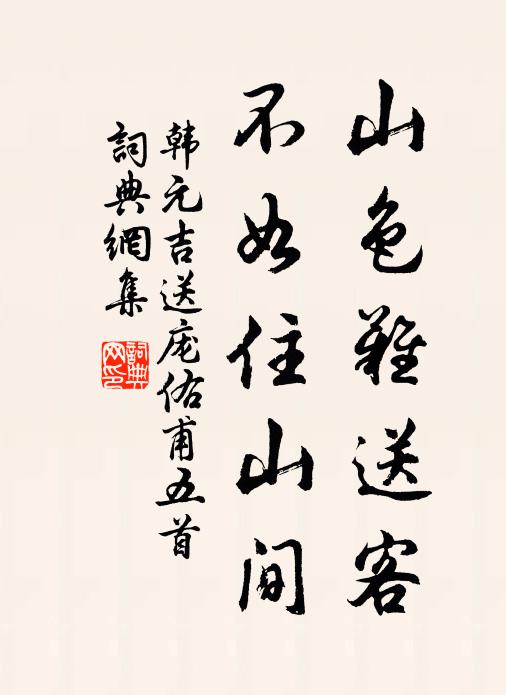 山色難送客
不如住山間
韩元吉送庞佑甫五首
詞典網集
詞典網印